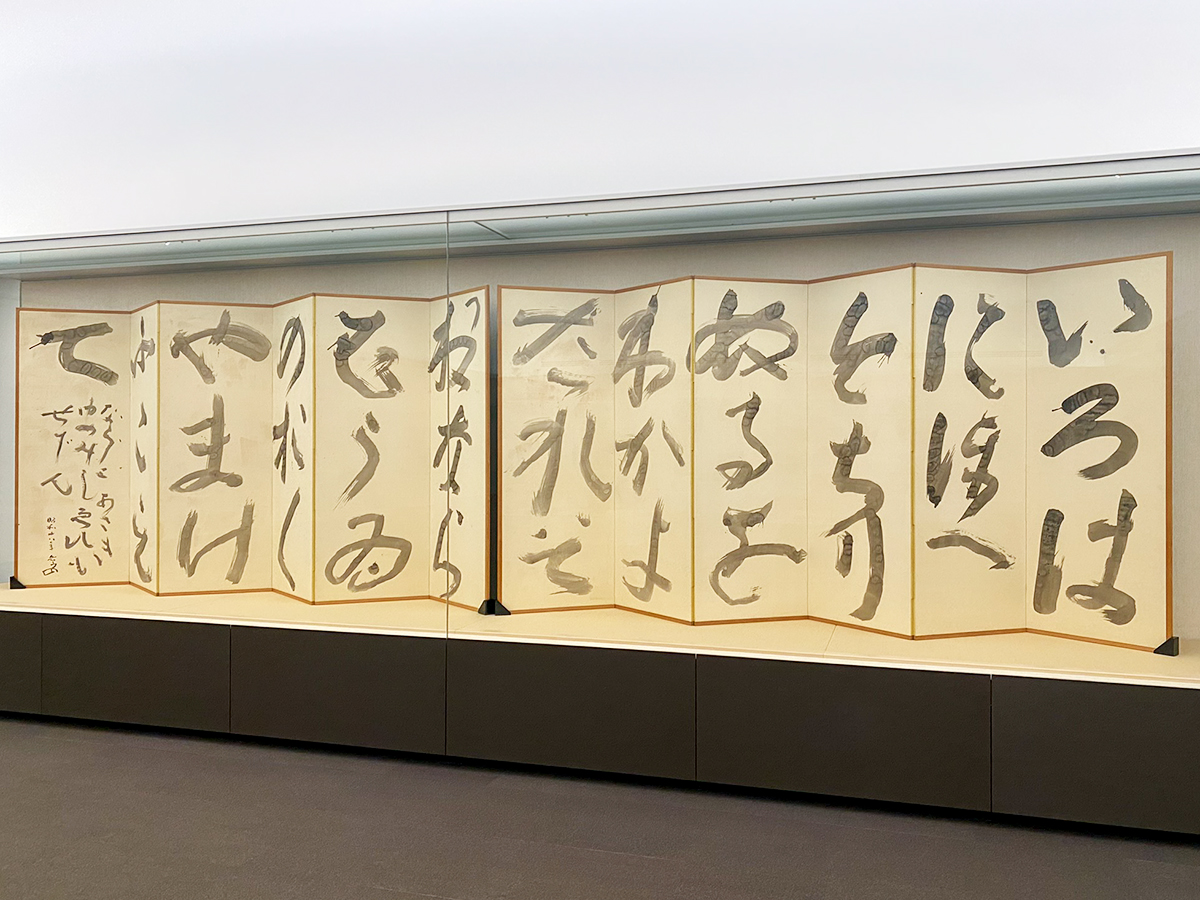 いろは
にほへ
とちり
ぬるを
わかよ
たれそ
つねなら
むうゐ
のおく
やまけ
ふこえ
て
あさき
ゆめみしゑひも
せすん
昭和